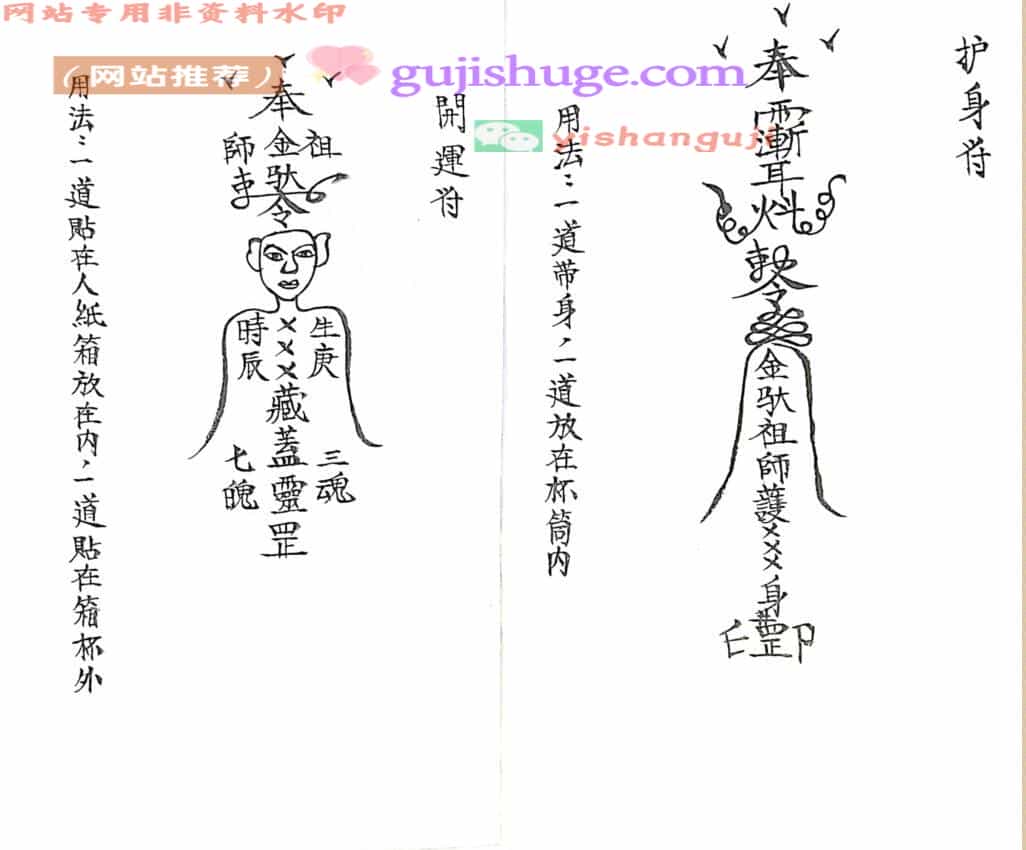 网站专用非资料水印
（网站推荐）
gujishuge.com
yishanguji
护身符
奉
敕令
金馱祖師護×××身
罡
用法：一道带身，一道放在杯筒内
開運符
奉
祖
金馱
師
敕令
生庚
×××藏蓋靈罡
時辰
三魂
七魄
用法：一道貼在人紙箱放在内，一道貼在箱杯外